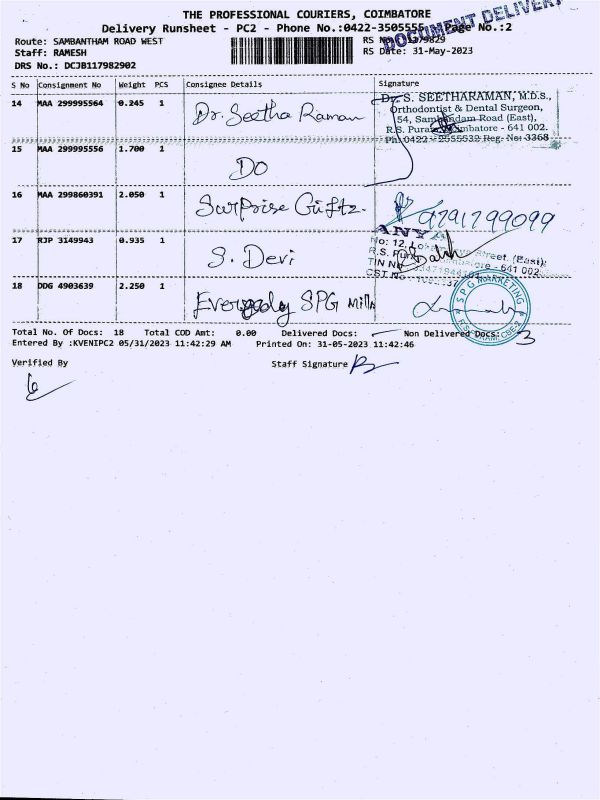 THE PROFESSIONAL COURIERS, COIMBATORE
DOCUMENT DELIVERY
Delivery Runsheet - PC2 - Phone No.:0422-3505555 Page No.:2
Route: SAMBANTHAM ROAD WEST
Staff: RAMESH RS Date: 31-May-2023
DRS No.: DCJB117982902
S No Consignment No Weight PCS Consignee Details Signature
14 MAA 299995564 0.245 1 Dr. Seetha Raman
Dr. S. SEETHARAMAN, M.D.S.,
Orthodontist & Dental Surgeon,
54, Sambandam Road (East),
R.S. Puram, Coimbatore - 641 002.
Ph: 0422 - 2555532 Reg. No: 3368
15 MAA 299995556 1.700 1 DO
16 MAA 299860391 2.050 1 Surprise Giftz. 9791799099
17 RJP 3149943 0.935 1 S. Devi
ANYA
No: 12, Street (East),
R.S. Pur - 641 002
TIN No
CST No
18 DDG 4903639 2.250 1 SPG Mills
SPG MARKETING
Total No. Of Docs: 18 Total COD Amt: 0.00 Delivered Docs: Non Delivered Docs: 3
Entered By :KVENIPC2 05/31/2023 11:42:29 AM Printed On: 31-05-2023 11:42:46
Verified By Staff Signature